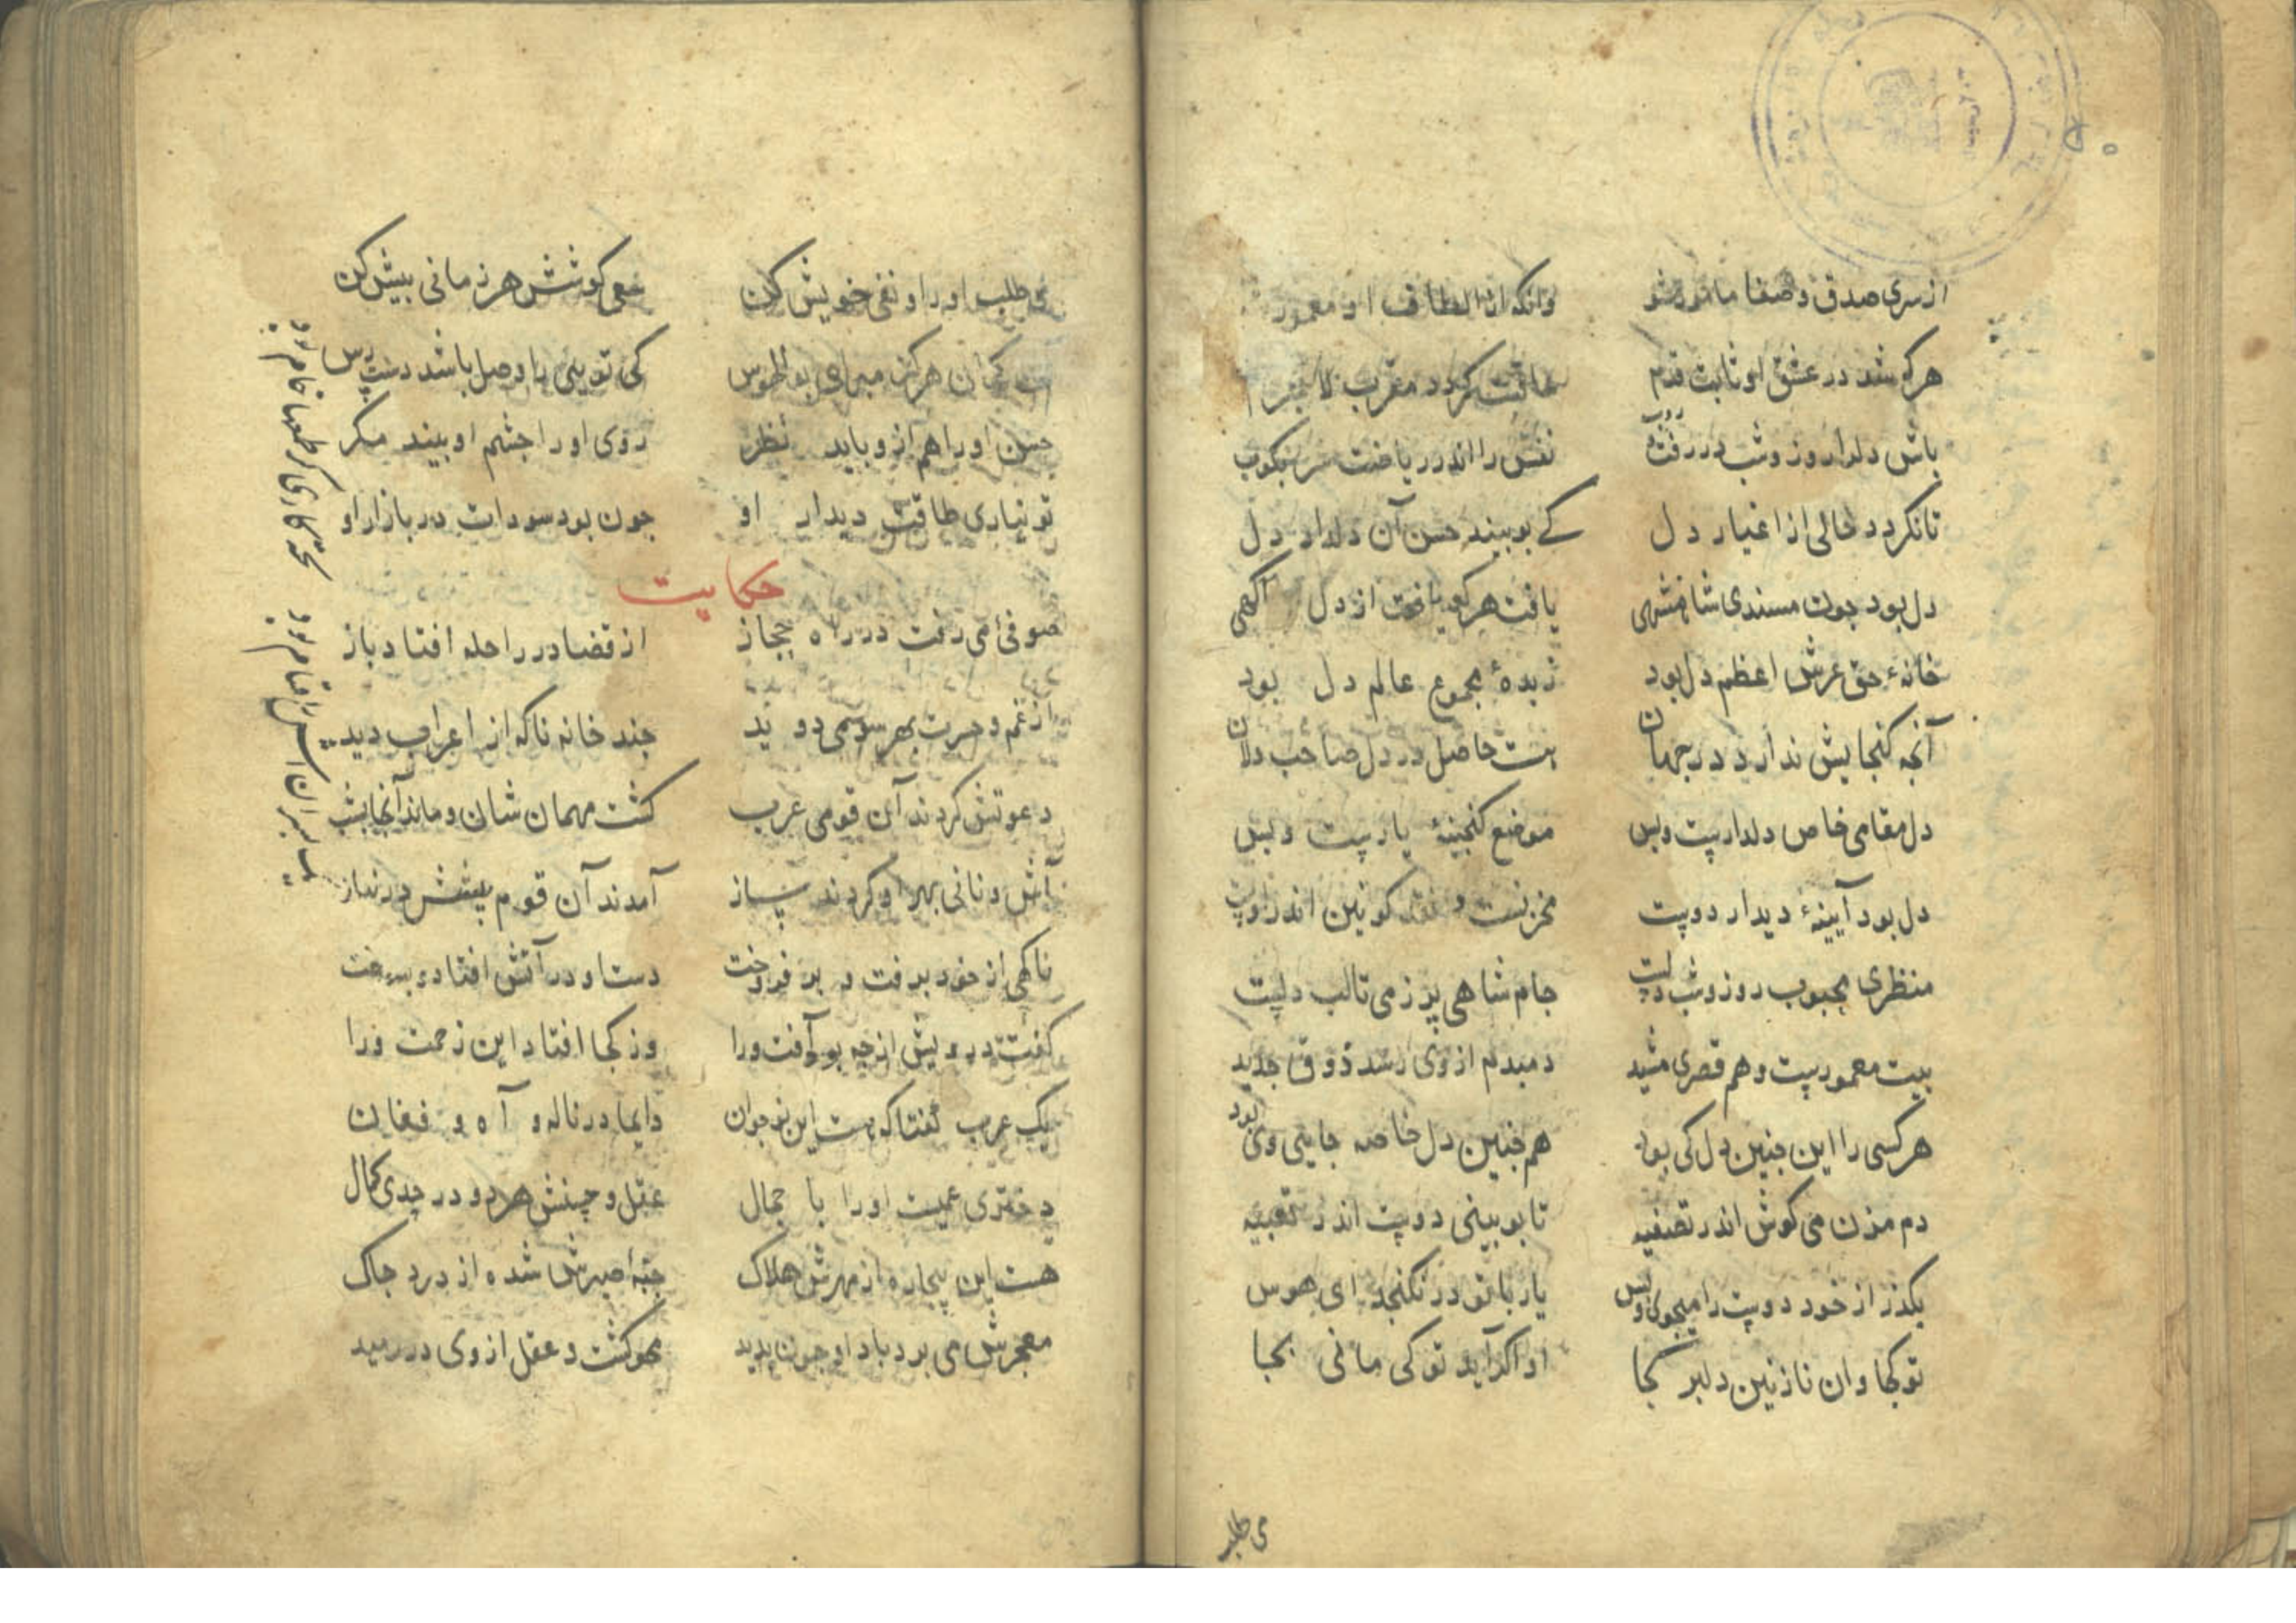 از سری صدق و صفا مأمور شو وانکه از الطاف او معمور
هرکه شد در عشق او ثابت قدم عاقبت کردد مقرب لاجرم
باش دلدار روز وشب در رفت نفس را اندر ریاضت سر بکوب
تا نکردد خالی از اغیار دل کے بو بیند حسن آن دلدار دل
دل بود جون مسندی شاهنشهی یافت هرکو یافت از دل آکهی
خانهٔ حق عرش اعظم دل بود زبدهٔ مجموع عالم دل بود
آنجه کنجایش ندارد در جهان هست حاصل در دل صاحب دلان
دل مقامی خاص دلدارست وبس موضع کنجینهٔ یارست وبس
دل بود آیینهٔ دیدار دوست مخزنست و نقد کونین اندروست
منظری محبوب روز وشب دلست جام شاهی پر ز می تالب دلست
بیت معمورست و هم قصری مشید دمبدم از وی رسد ذوق جدید
هر کسی را این جنین دل کی بود هم جنین دل خاصه جایی وی بود
دم مزن می کوش اندر تصفیه تا بو بینی دوست اندر تعبیه
بکذر از خود دوست را میجوی وبس یار با تو در نکنجد ای هوس
تو کجا وان نازنین دلبر کجا او اکر آید تو کی مانی بجا
می طلب
می طلب او را و نفی خویش کن سعی کوشش هر زمانی بیش کن
کمان هرکز مبرای بوالهوس کی تو بینی با وصل باشد دست رس
حسن او را هم ازو باید نظر روی او را جشم او بیند مکر
تو نیاری طاقت دیدار او جون بود سودات در بازار او
حکایت
صوفیٔ می رفت در راه حجاز از قضا در راحله افتاد باز
از غم و حسرت بهر سو می دوید جند خانه ناکه از اعراب دید
دعوتش کردند آن قومی عرب کشت مهمان شان و ماند آنجا بشب
آش و نانی بهر او کردند ساز آمدند آن قوم پیشش در نیاز
ناکهی از خود برفت و بر فروخت دست او در آتش افتاد و بسوخت
کفت درویش از جه بود آفت ورا وز کجا افتاد این زحمت ورا
یک عرب کفتا که هست این نوجوان دایما در ناله و آه و فغان
دختری عمیست او را با جمال عقل و حسنش هر دو در حدی کمال
هست این بیجاره از مهرش هلاک جبهٔ صبرش شده از درد جاک
معجرش می برد باد او جون بدید محو کشت و عقل از وی در رمید